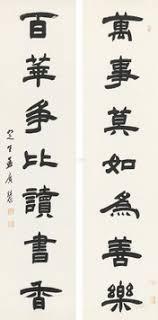 萬事莫如為善樂
百華爭比讀書香